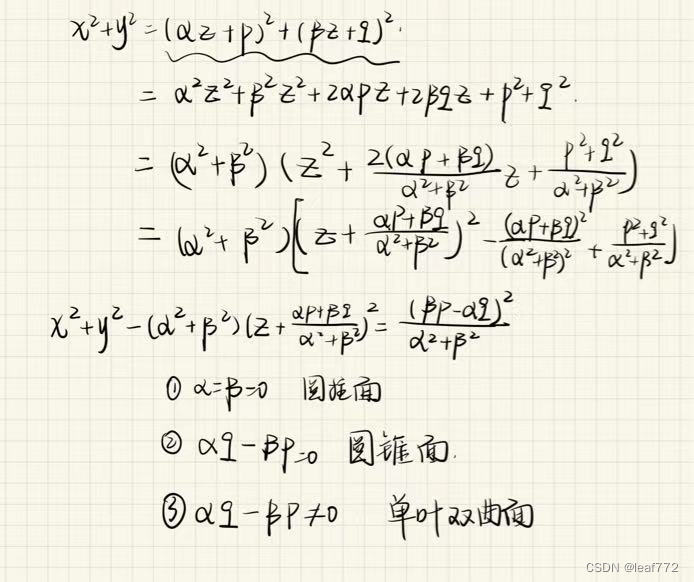 x²+y² = (αz+p)²+(βz+q)².
= α²z²+β²z²+2αpz+2βqz+p²+q².
= (α²+β²)(z²+\frac{2(αp+βq)}{α²+β²}z+\frac{p²+q²}{α²+β²})
= (α²+β²)[(z+\frac{αp+βq}{α²+β²})²-\frac{(αp+βq)²}{(α²+β²)²}+\frac{p²+q²}{α²+β²}]
x²+y²-(α²+β²)(z+\frac{αp+βq}{α²+β²})²=\frac{(βp-αq)²}{α²+β²}
① α=β=0 圆柱面
② αq-βp=0 圆锥面.
③ αq-βp≠0 单叶双曲面
CSDN @leaf772